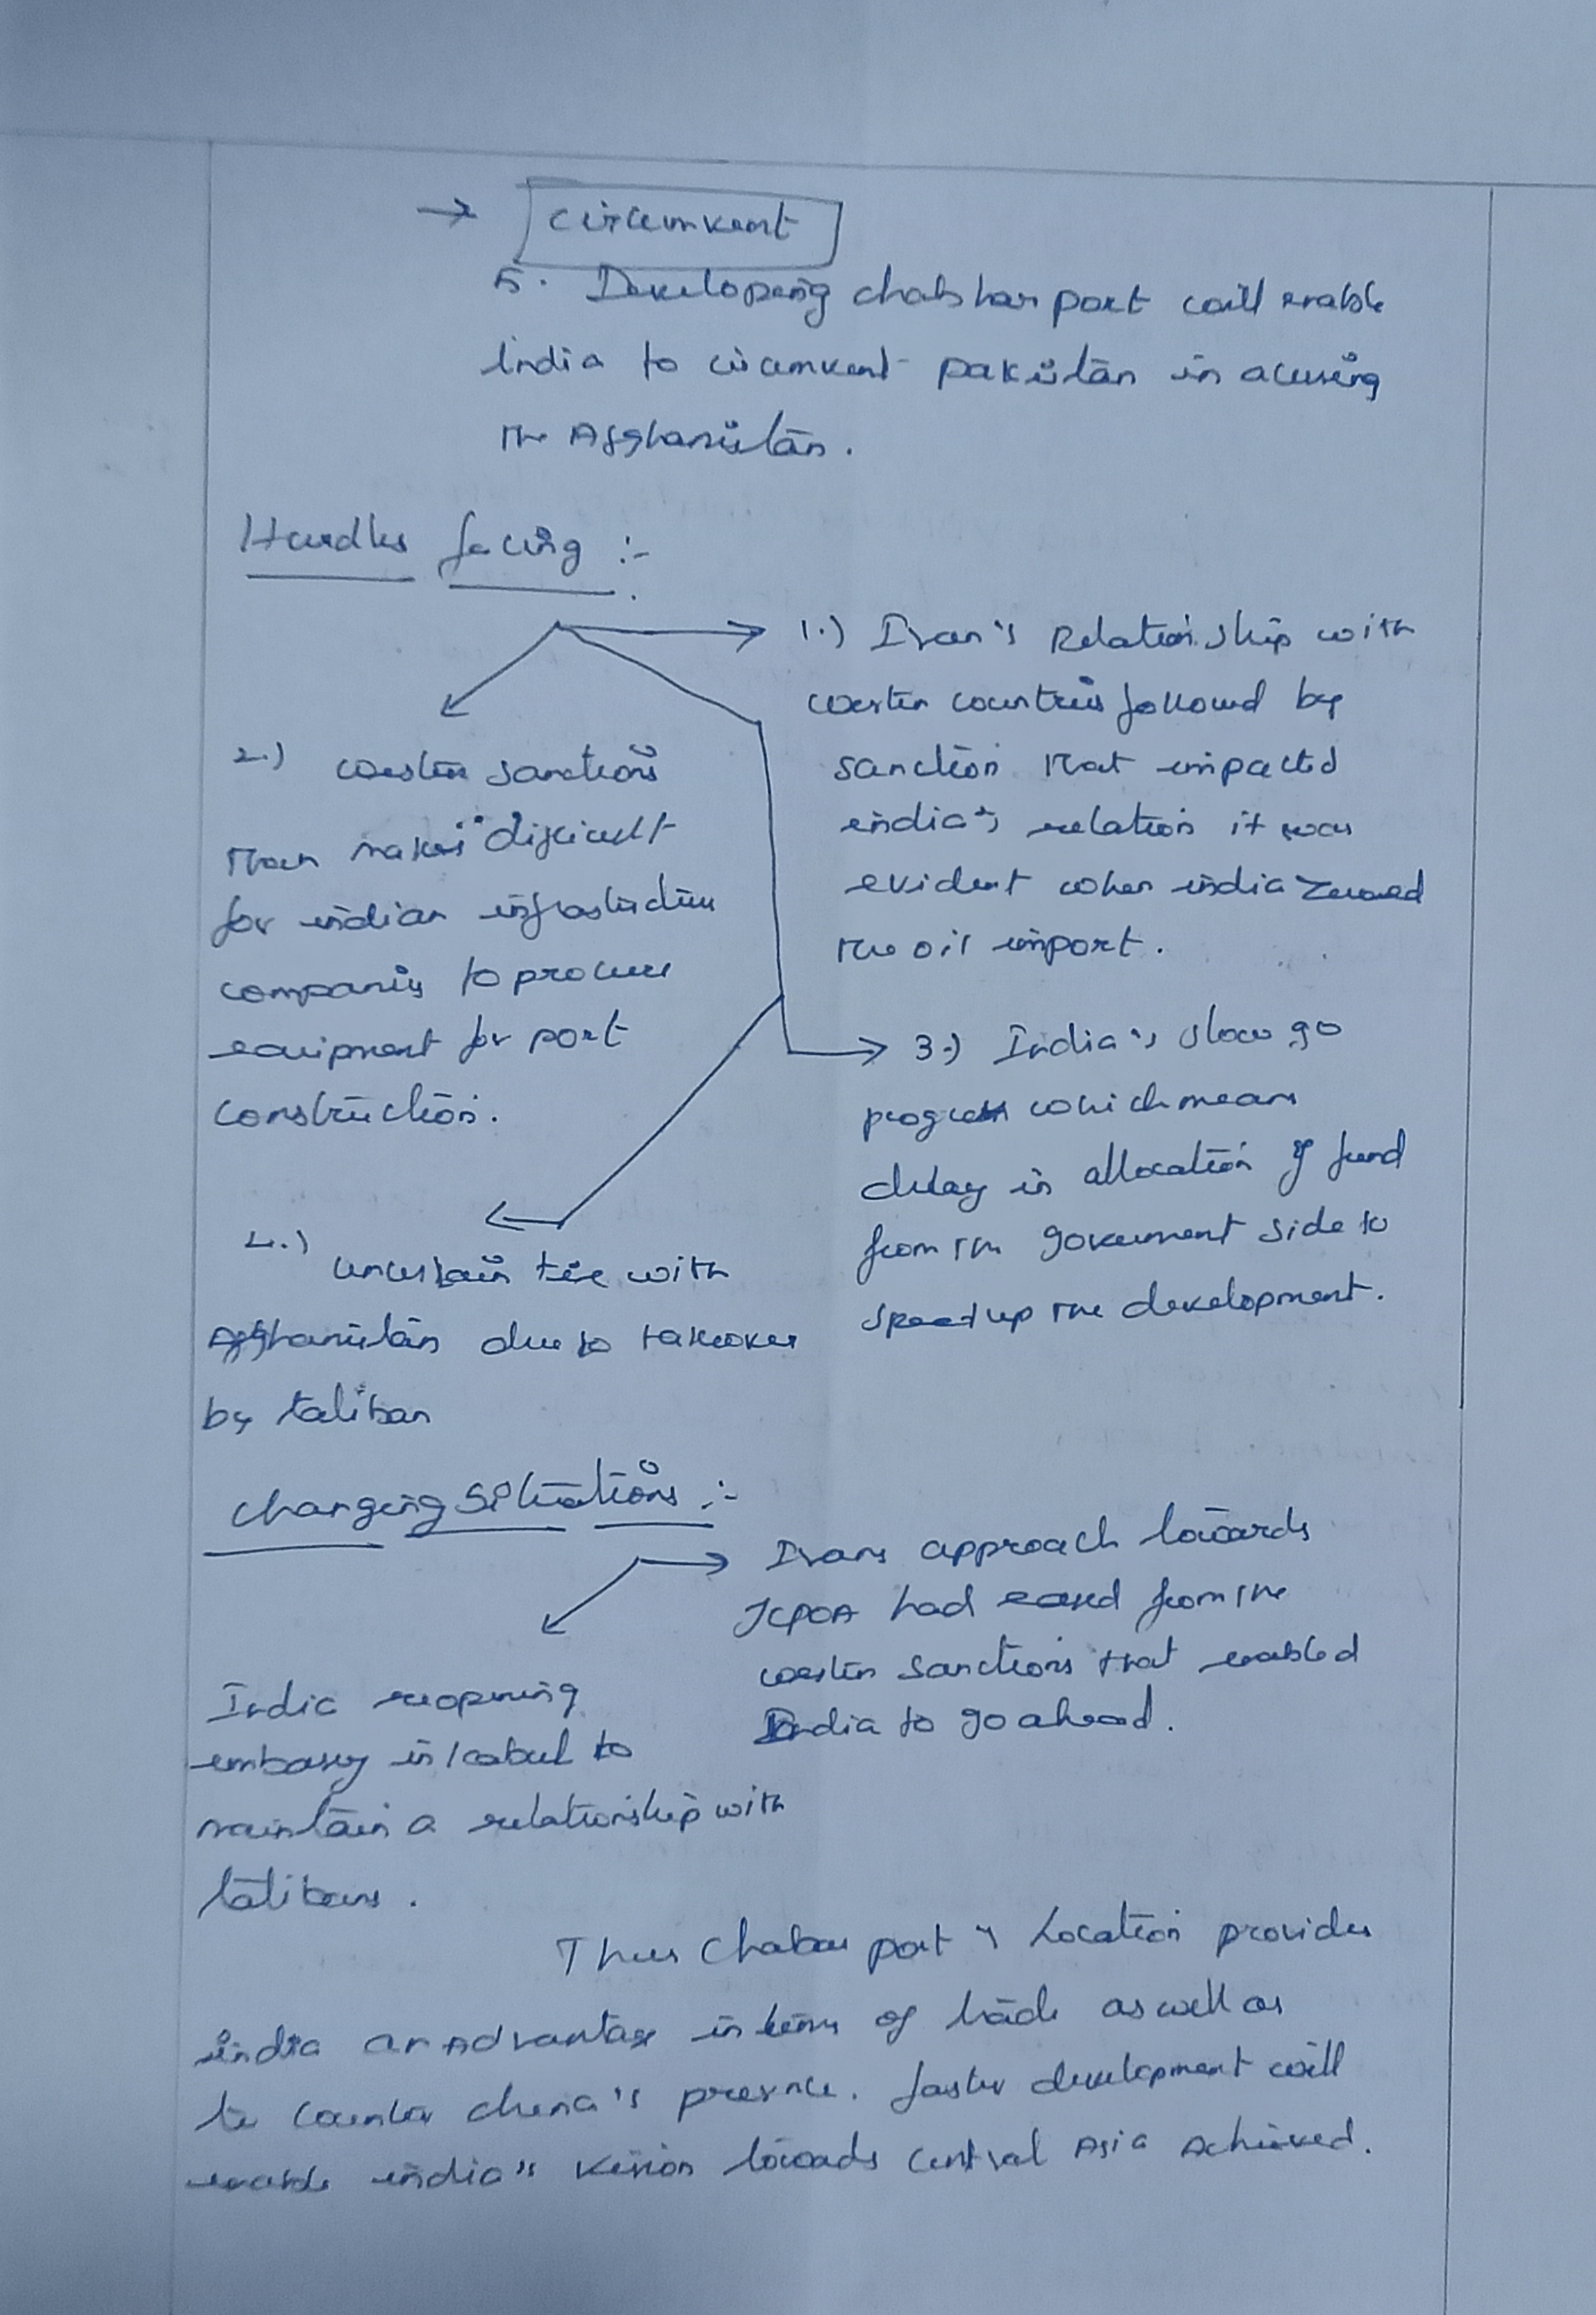 → circumvent
5. Developing chabhar port will enable
India to circumvent pakistan in accessing
the Afghanistan.
Hurdles facing :-
1.) Iran's Relationship with
western countries followed by
sanction that impacted
india's relation it was
evident when india zeroed
the oil import.
2.) western sanctions
than makes difficult
for indian infrastructure
companies to procure
equipment for port
construction.
3.) India's slow go
progress which means
delay in allocation of fund
from the government side to
speed up the development.
4.) uncertain tie with
Afghanistan due to takeover
by taliban
Changing Situations :-
Irans approach towards
JCPOA had eased from the
western sanctions that enabled
India to go ahead.
India reopening
embassy in kabul to
maintain a relationship with
talibans.
Thus Chabar port's Location provides
india an Advantage in terms of trade as well as
to counter china's presence. faster development will
enable india's vision towards Central Asia Achieved.